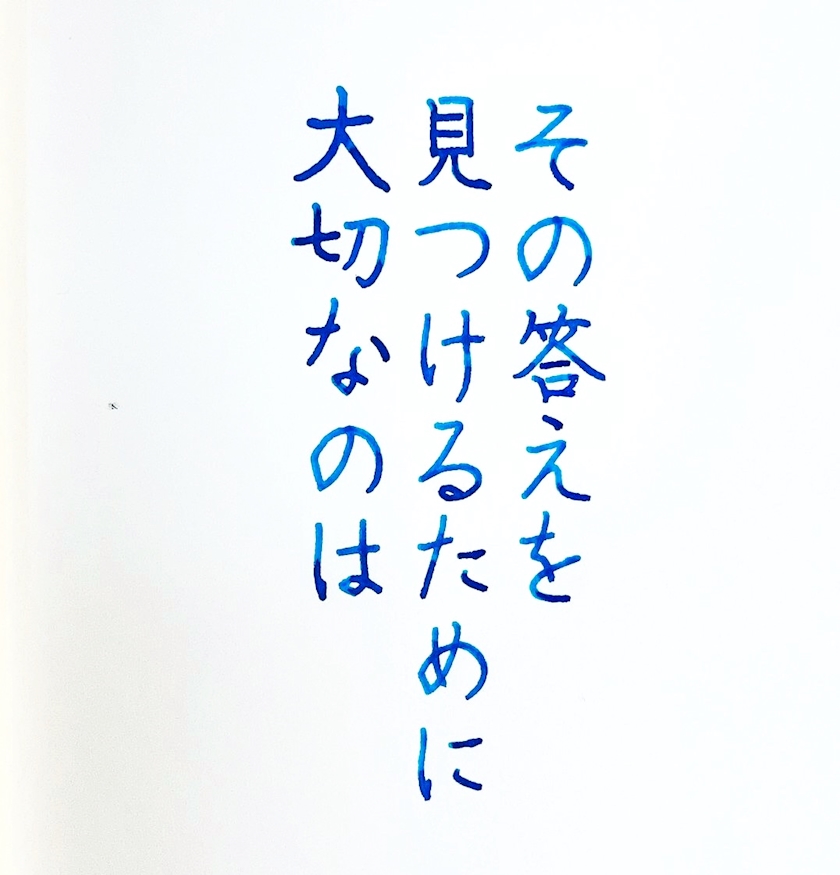 その答えを
見つけるために
大切なのは